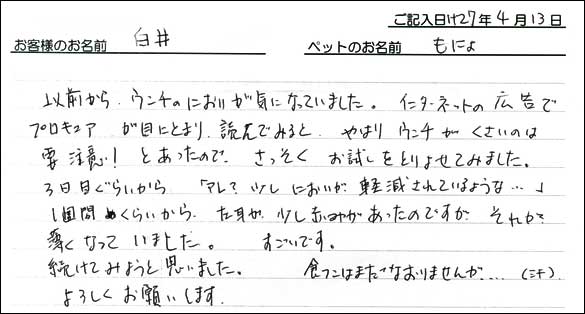 ご記入日け27年4月13日
お客様のお名前 白井 ペットのお名前 もにょ
以前から、ウンチのにおいが気になっていました。インターネットの広告で
プロキュア が目にとまり、読んでみると、やはりウンチがくさいのは
要注意！とあったので、さっそくお試しをとりよせてみました。
3日目ぐらいから「アレ？少しにおいが軽減されているような…」
1週間めくらいから、左耳が少し赤みがあったのですが、それが
薄くなっていました。 すごいです。
続けてみようと思いました。 食フンはまだなおりませんが…
よろしくお願いします